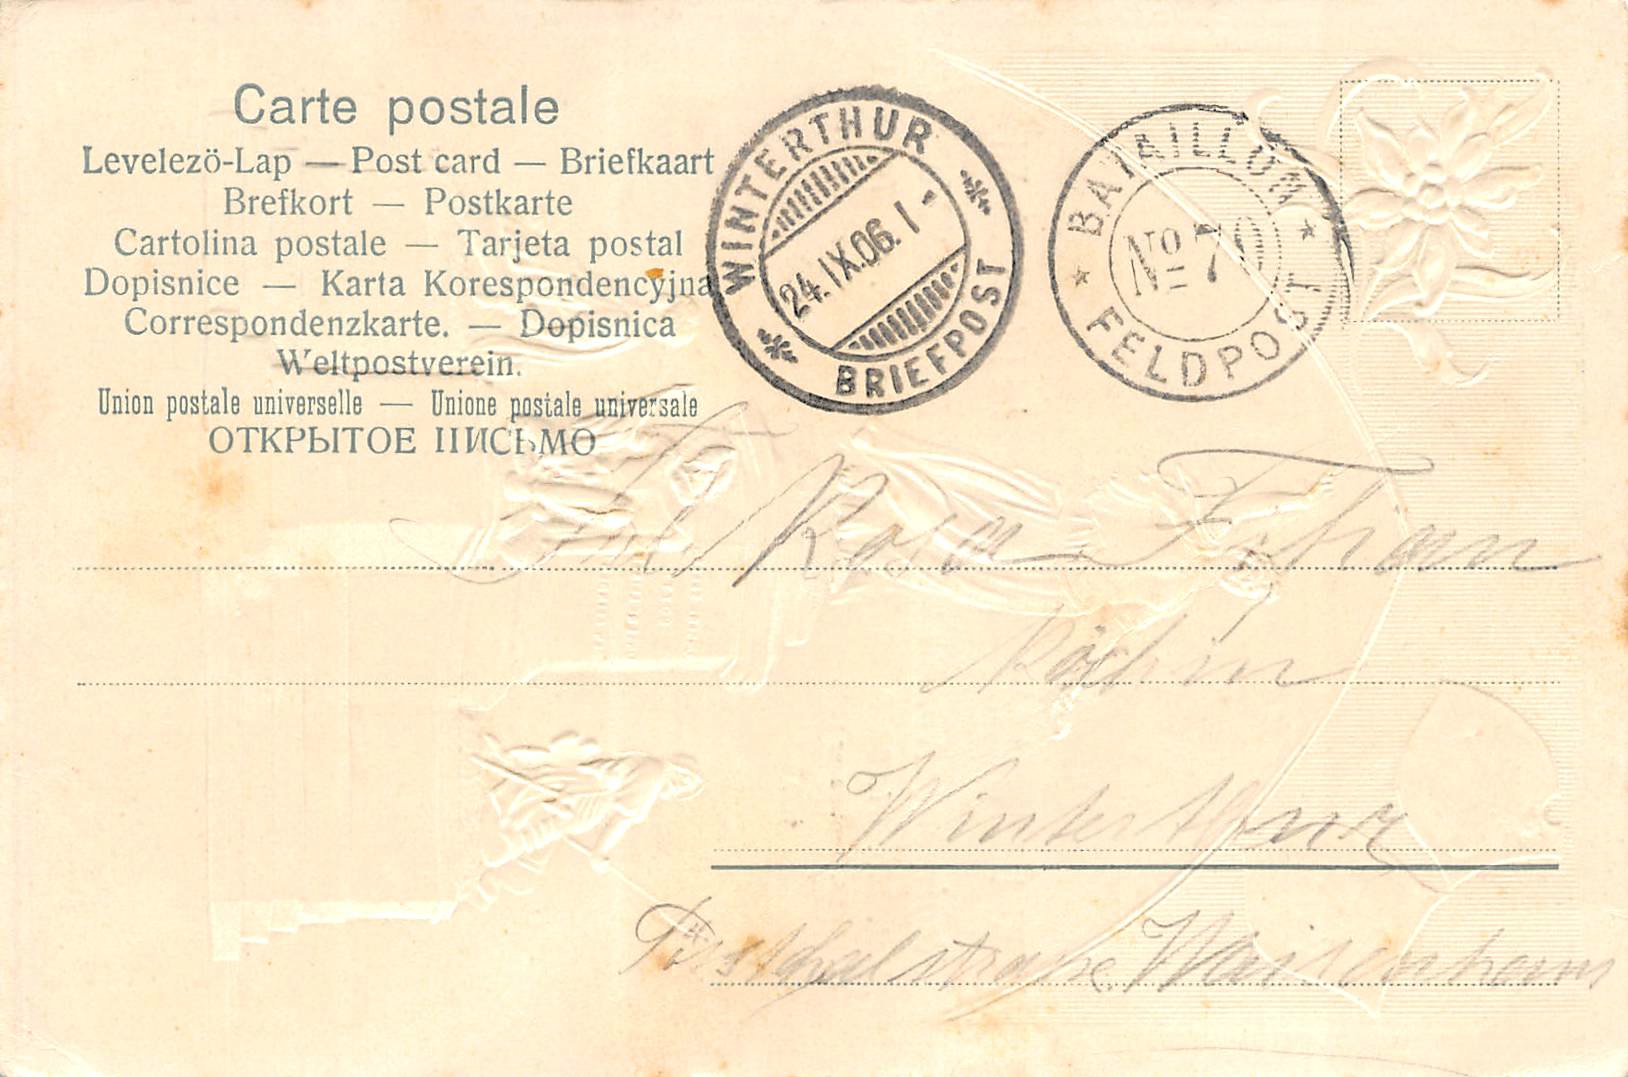 Carte postale
Levelezö-Lap — Post card — Briefkaart
Brefkort — Postkarte
Cartolina postale — Tarjeta postal
Dopisnice — Karta Korespondencyjna
Correspondenzkarte. — Dopisnica
Weltpostverein.
Union postale universelle — Unione postale universale
ОТКРЫТОЕ ПИСЬМО
WINTERTHUR
24.IX.06. I -
BRIEFPOST
BATAILLON
No 70
FELDPOST
Frl Rosa
Köchin
Winterthur